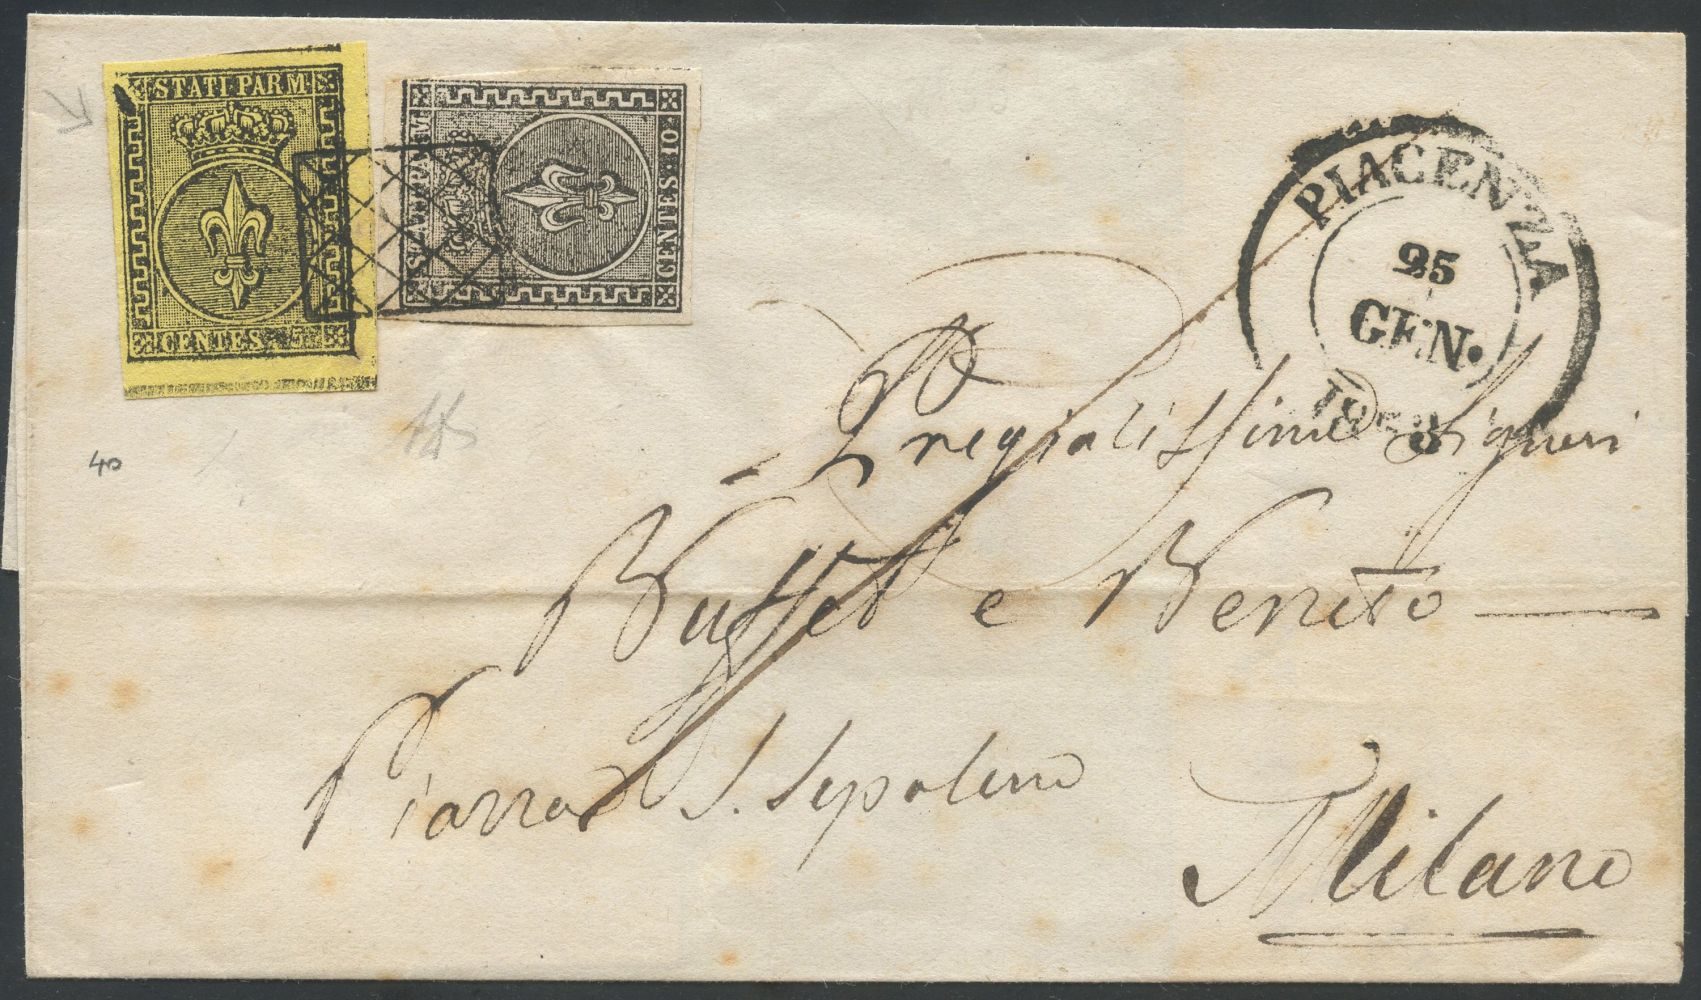 STATI PARM.
CENTES. 5
STATI PARM.
CENTES. 10
PIACENZA
25
GEN.
1853
Pregiatissimi Signori
Buffet e Benito
Piazza S. Sepolcro
Milano
40